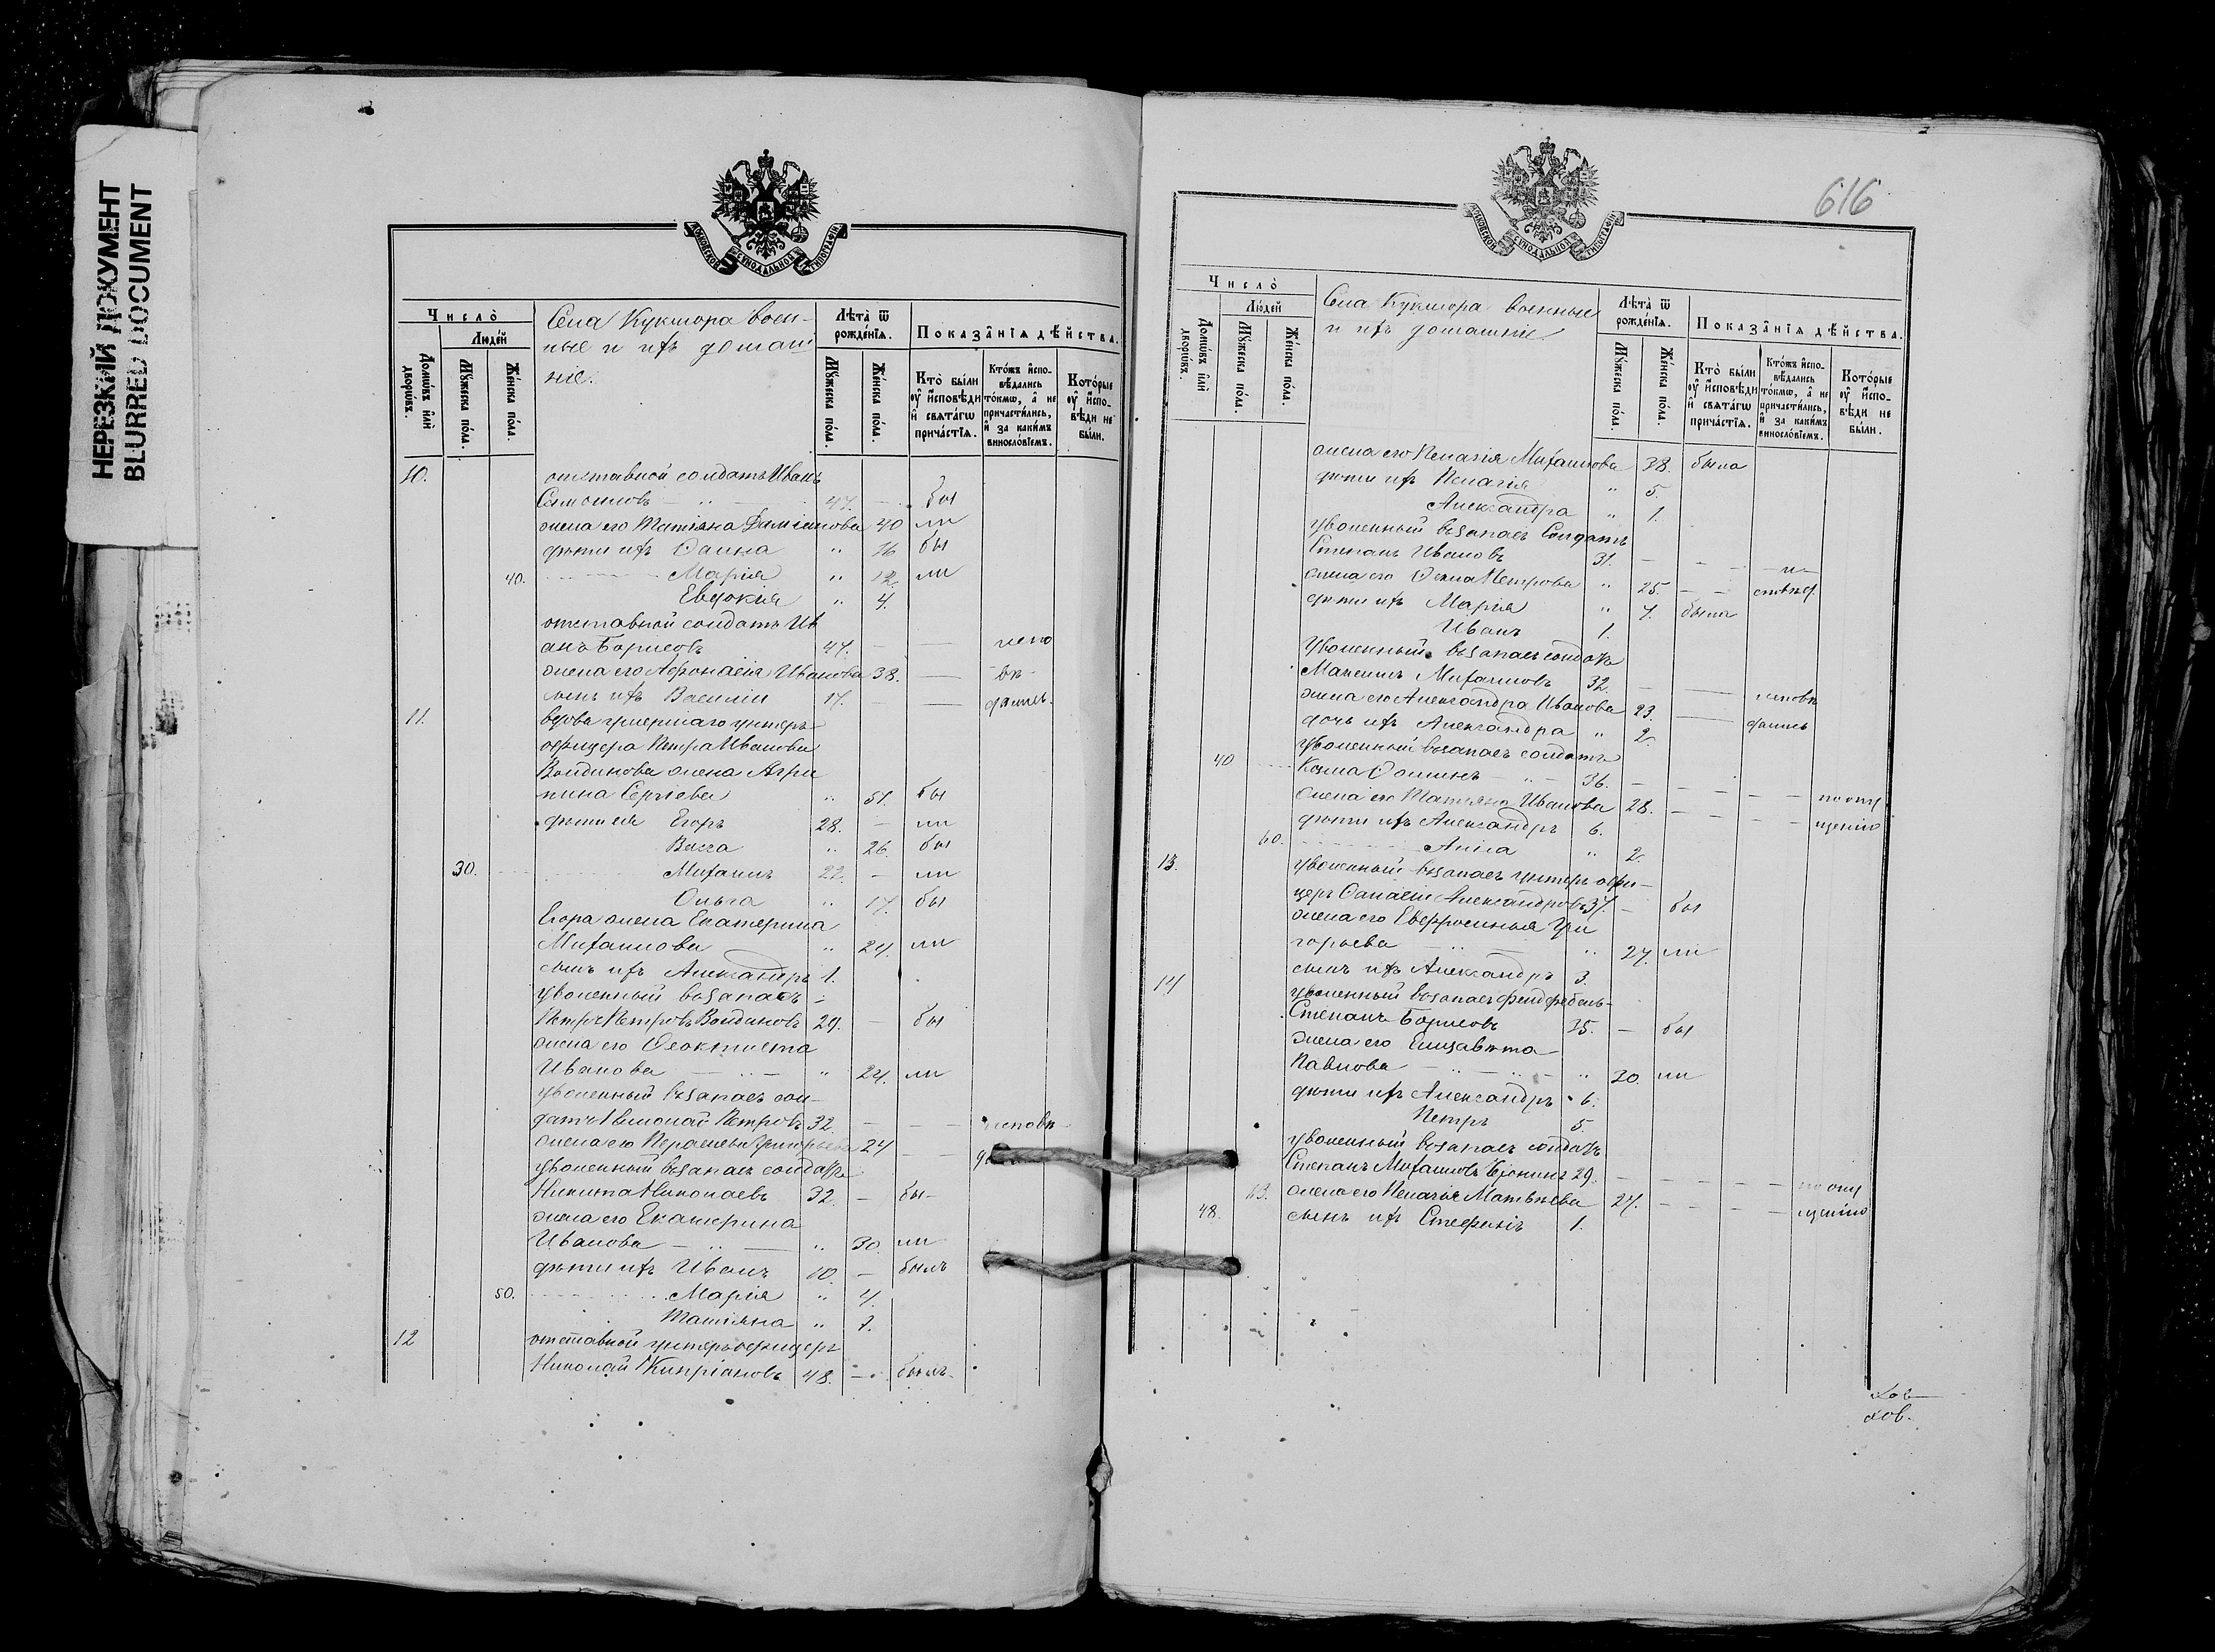 НЕРЕЗКИЙ ДОКУМЕНТ
BLURRED DOCUMENT
МОСКОВСКОЙ СѴНОДАЛЬНОЙ ТИПОГРАФІИ
Число̀
Людей
Домѡвъ илѝ дворѡвъ.
Мꙋжеска по́ла.
Же́нска по́ла.
Села Кукмора воен-
ные и ихъ домаш
ніе.
Лѣта̀ ѿ рожде́нїѧ.
Мꙋжеска по́ла.
Же́нска по́ла.
Показа̂нїѧ дѣ́йства.
Кто̀ бы́ли ᲂу҆ и҆сповѣди и҆ свѧта́гѡ прича́стїѧ.
Кто́жъ и҆спо- вѣдались то́кмѡ, а҆ не причасти́лись, и҆ за каки́мъ винослⷪ́вїемъ.
Кото́рые ᲂу҆ и҆спо- вѣди не бы́ли.
10. отставной солдатъ Иванъ
Самоиловъ — 47. — бы
жена его Татіяна Даміанова 40 ли
дѣти ихъ Фаина " 16 бы
40. Марія " 12. ли
Евдокія " 4.
отставной солдатъ Ив
анъ Борисовъ 47. — испо
жена его Афонасія Иванова 38. — вѣ-
сынъ ихъ Василій 17. — дались.
11. вдова умершаго унтеръ
офицера Петра Иванова
Вондинова жена Агри
пина Сергіева " 51. бы
дѣти ея Егоръ 28. — ли
Васса " 26. бы
30. Михаилъ 22. — ли
Ольга " 17. бы
Егора жена Екатерина
Михаилова " 24. ли
сынъ ихъ Александръ 1.
уволенный въ запасъ
Петръ Петровъ Вондиновъ 29. — бы
жена его Феоктиста
Иванова — " — " 24. ли
уволенный въ запасъ сол-
датъ Николай Петровъ 32. — — исповѣ-
жена его Параскева Григорьева 24 — —
уволенный въ запасъ солдатъ
Никита Николаевъ 32. — бы-
жена его Екатерина
Иванова — " — " 30. ли
дѣти ихъ Иванъ 10. — былъ
50. Марія " 4.
Татіяна " 1.
12 отставной унтеръ офицеръ
Николай Кипріановъ 48. — былъ
616
МОСКОВСКОЙ СѴНОДАЛЬНОЙ ТИПОГРАФІИ
Число̀
Людей
Домѡвъ илѝ дворѡвъ.
Мꙋжеска по́ла.
Же́нска по́ла.
Села Кукмора военные
и ихъ домашніе.
Лѣта̀ ѿ рожде́нїѧ.
Мꙋжеска по́ла.
Же́нска по́ла.
Показа̂нїѧ дѣ́йства.
Кто̀ бы́ли ᲂу҆ и҆сповѣди и҆ свѧта́гѡ прича́стїѧ.
Кто́жъ и҆спо- вѣдались то́кмѡ, а҆ не причасти́лись, и҆ за каки́мъ винослⷪ́вїемъ.
Кото́рые ᲂу҆ и҆спо- вѣди не бы́ли.
жена его Пелагія Михаилова 38. была
дѣти ихъ Пелагія " 5.
Александра " 1.
уволенный въ запасъ Солдатъ
Степанъ Ивановъ 31. — — — и —
жена его Фекла Петрова " 25. — —
дѣти ихъ Марія " 7. была
Иванъ 1.
Уволенный въ запасъ солдатъ
Максимъ Михаиловъ 32. — — исповѣ
жена его Александра Иванова 23. — дались
дочь ихъ Александра " 2.
уволенный въ запасъ солдатъ
40 Козма Фоминъ — " — 36. — — — — по опу
жена его Татіяна Иванова 28. — — — щенію
дѣти ихъ Александръ 6.
60. Анна " 2.
13. уволенный въ запасъ унтеръ офи-
церъ Фалалей Александровъ 37. — бы
жена его Евфросинья Гри
горьева — " — " 27. ли
сынъ ихъ Александръ 3.
14 уволенный въ запасъ фельдфебель-
Степанъ Борисовъ 35. — бы
жена его Елизавѣта
Павлова — " — " — " 30. ли
дѣти ихъ Александръ 6.
Петръ 5.
уволенный въ запасъ солдатъ
Степанъ Михаиловъ 29. — — — — по опу
63. жена его Пелагія Матвѣева 24. — — — щенію
48. сынъ ихъ Стефанъ 1.